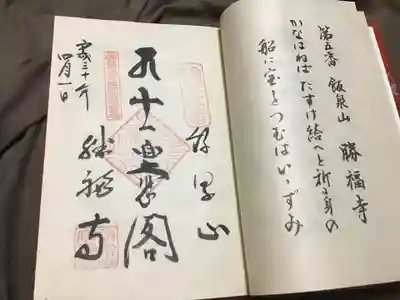 第五番 飯泉山 勝福寺
かなはねばたすけ給へと祈る身の
船に宝をつむはいゝずみ
飯泉山
十一 閣
勝福寺
平成三十年
四月一日